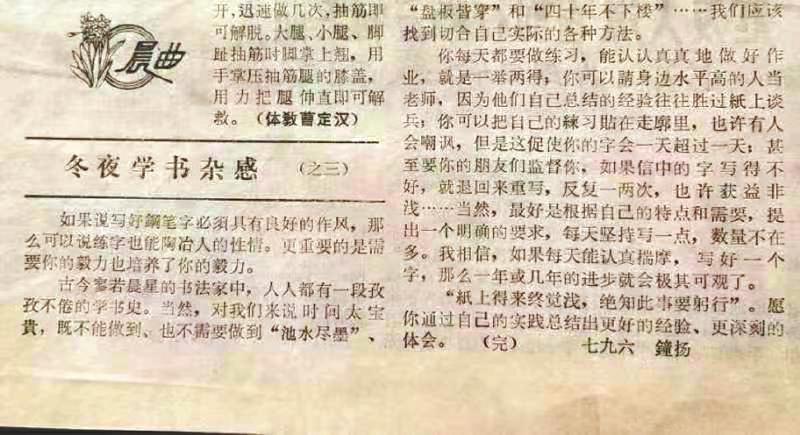 晨曲
开，迅速做几次，抽筋即
可解脱。大腿、小腿、脚
趾抽筋时脚掌上翘，用
手掌压抽筋腿的膝盖，
用力把腿伸直即可解
救。（体教曹定汉）
冬夜学书杂感 （之三）
如果说写好鋼笔字必須具有良好的作风，那
么可以说练字也能陶冶人的性情。更重要的是需
要你的毅力也培养了你的毅力。
古今寥若晨星的书法家中，人人都有一段孜
孜不倦的学书史。当然，对我们来说时间太宝
貴，既不能做到、也不需要做到“池水尽墨”、
“盘板皆穿”和“四十年不下楼”……我们应该
找到切合自己实际的各种方法。
你每天都要做练习，能认认真真地做好作
业，就是一举两得；你可以請身边水平高的人当
老师，因为他们自己总结的经验往往胜过紙上谈
兵；你可以把自己的練习貼在走廓里，也许有人
会嘲讽，但是这促使你的字会一天超过一天；甚
至要你的朋友们监督你，如果信中的字写得不
好，就退回来重写，反复一两次，也许获益非
浅……当然，最好是根据自己的特点和需要，提
出一个明确的要求，每天坚持写一点，数量不在
多。我相信，如果每天能认真揣摩，写好一个
字，那么一年或几年的进步就会极其可观了。
“紙上得来终觉浅，绝知此事要躬行”。愿
你通过自己的实践总结出更好的经验、更深刻的
体会。 （完） 七九六 鐘扬